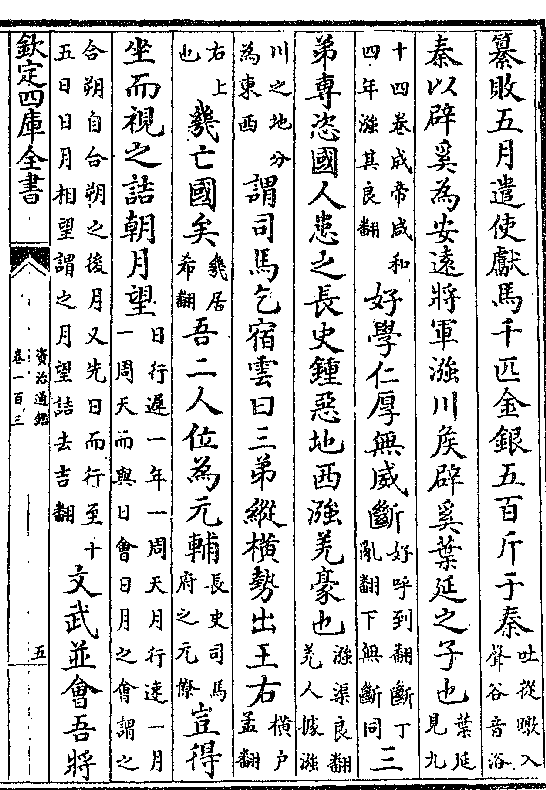 纂敗五月遣使獻馬千匹金銀五百斤于秦吐從暾入聲谷音浴
秦以辟奚為安遠將軍漒川侯辟奚葉延之子也葉延見九
十四卷成帝咸和四年漒其良翻好學仁厚無威斷好呼到翻斷丁亂翻下無斷同三
弟專恣國人患之長史鍾惡地西漒羌豪也漒渠良翻羌人據漒
川之地分為東西謂司馬乞宿雲曰三弟縱橫勢出王右橫戶孟翻
右上也幾亡國矣幾居希翻吾二人位為元輔長史司馬府之元僚豈得
坐而視之詰朝月望日行遲一年一周天月行速一月一周天而與日會日月之會謂之
合朔自合朔之後月又先日而行至十五日日月相望謂之月望詰去吉翻文武並會吾將
欽定四庫全書
資治通鑑
卷一百三
五